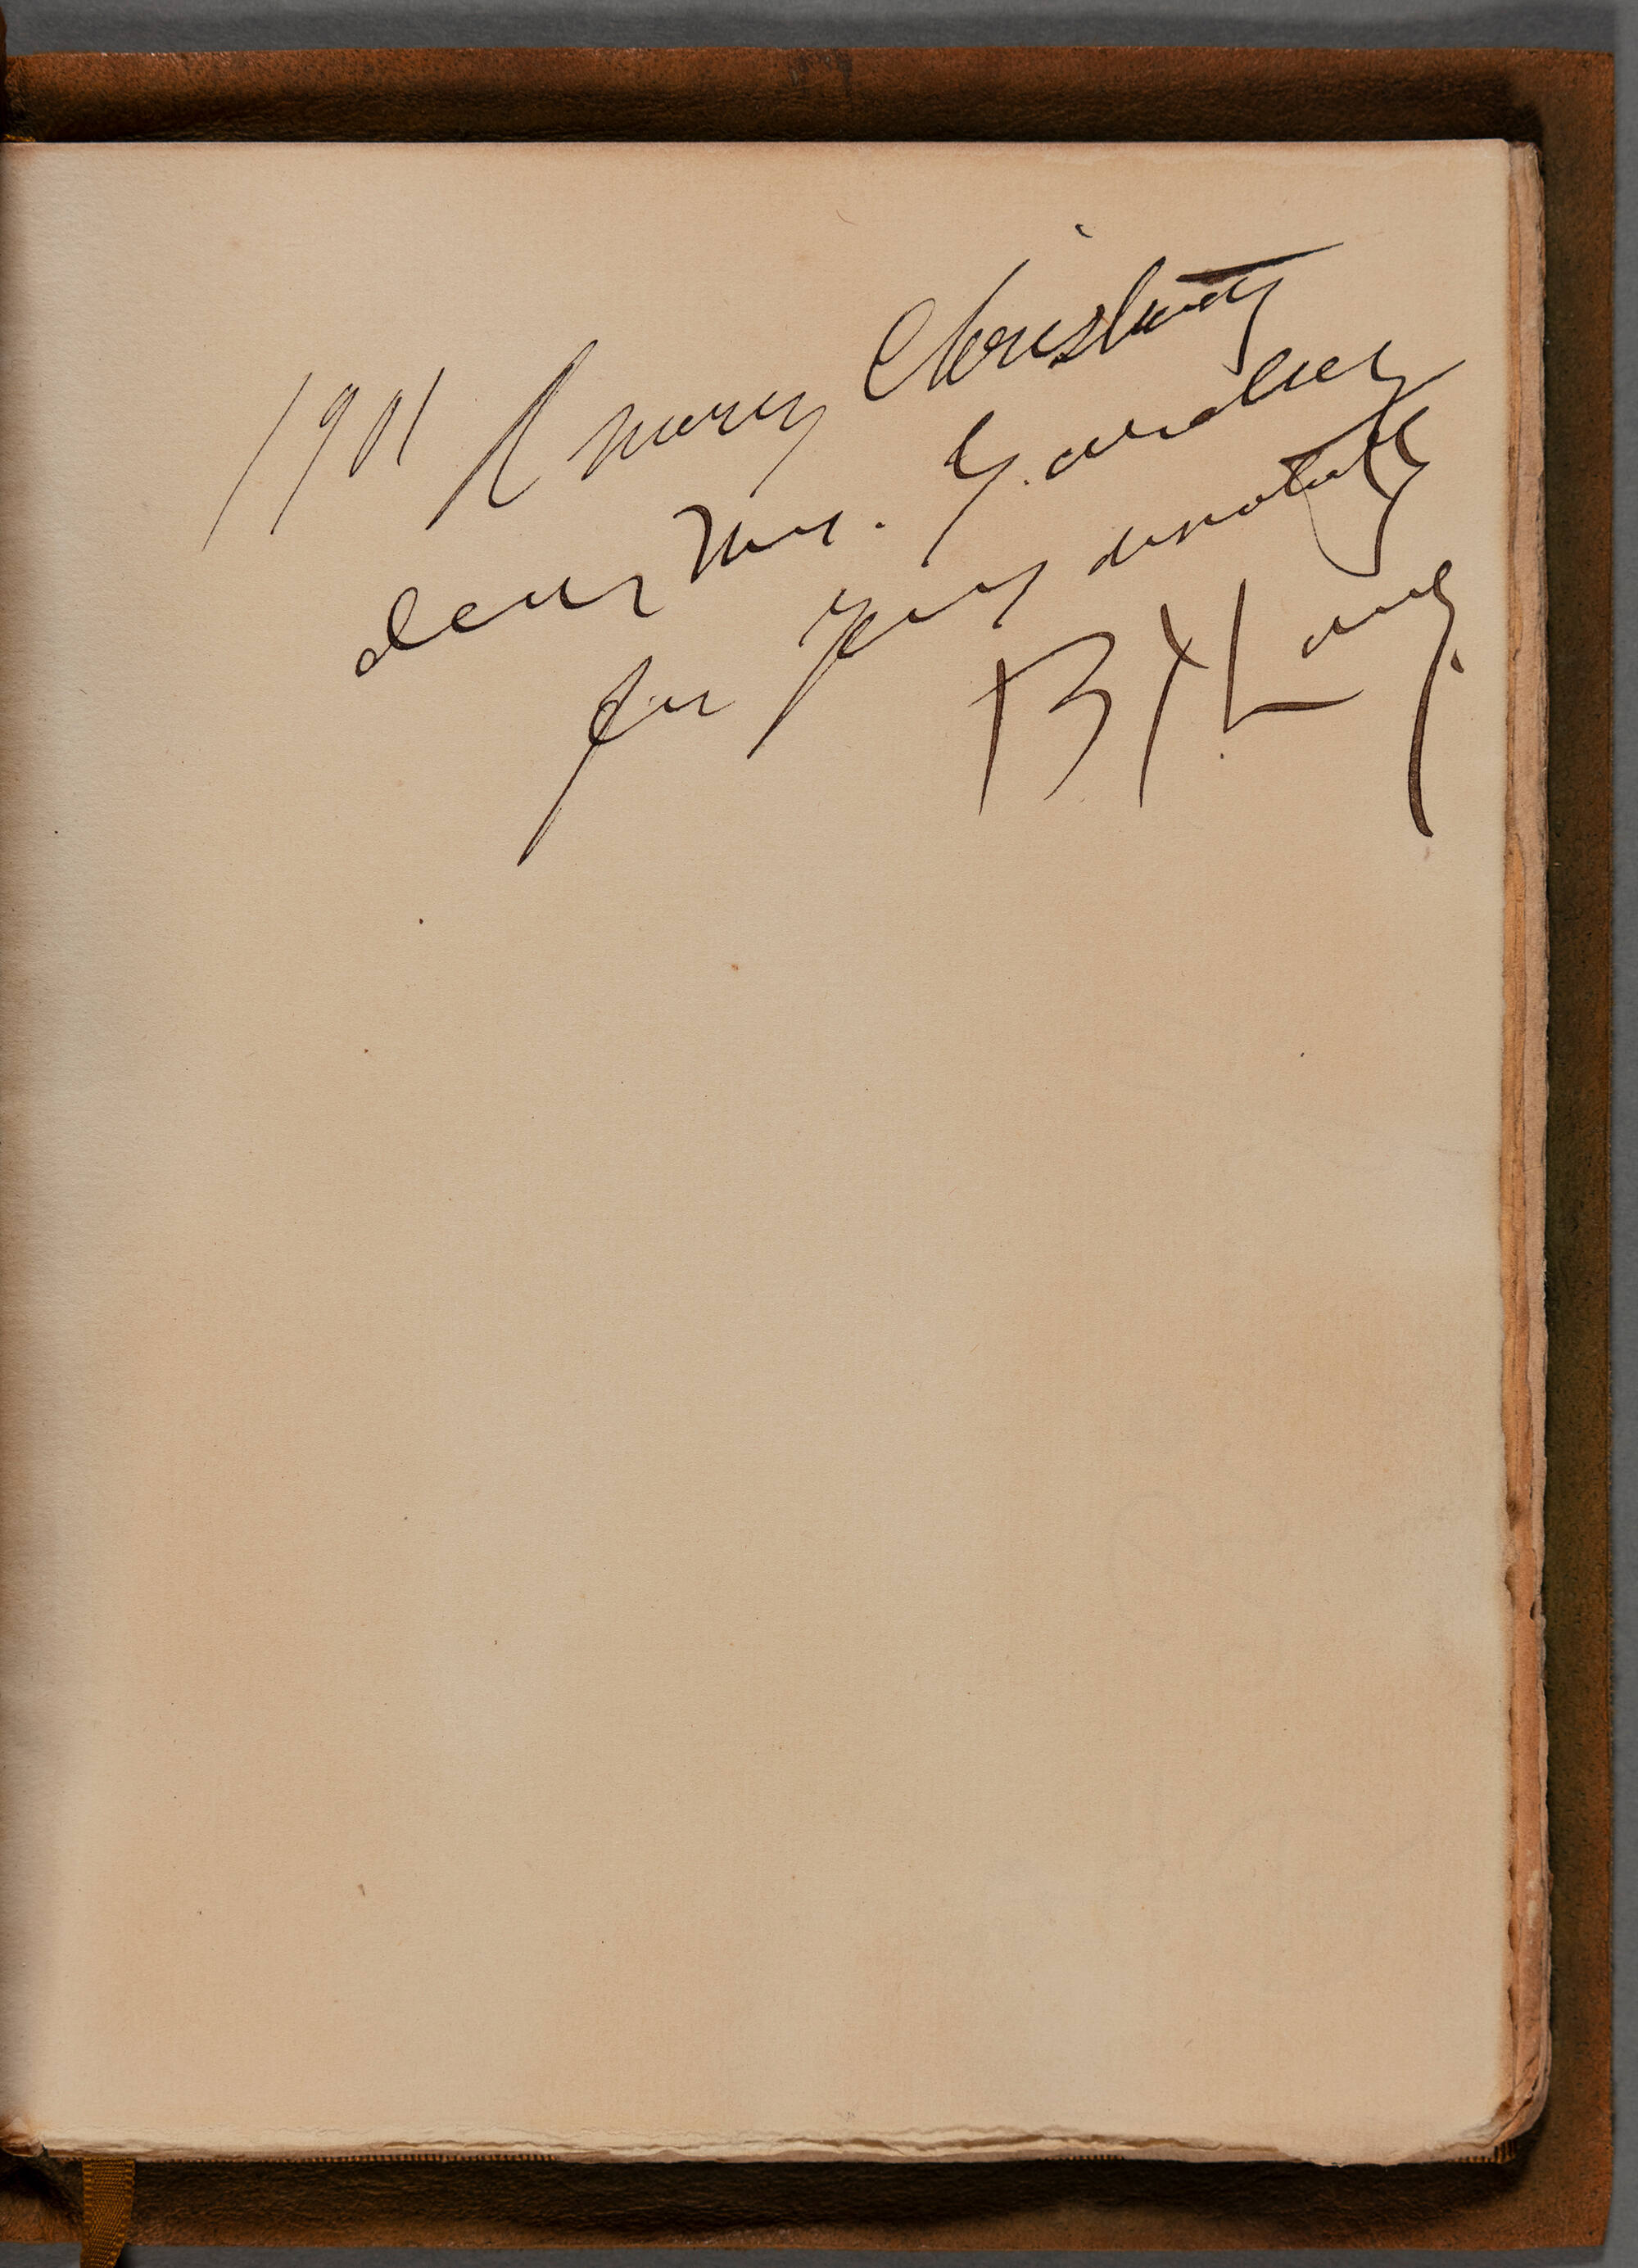 1901 A merry Christmas
dear Mrs. Gardner
yours devotedly
B J Lang